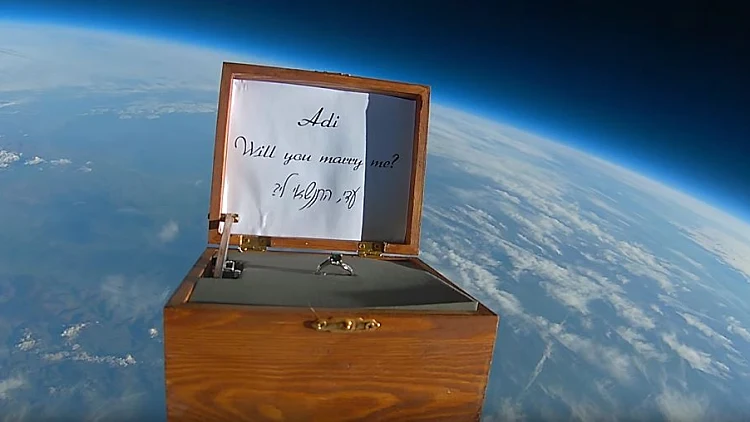 Adi
Will you marry me?
עדי, התנשאי לי?